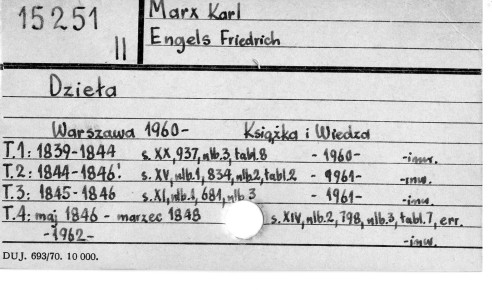 15251
II
Marx Karl
Engels Friedrich
Dzieła
Warszawa 1960- Książka i Wiedza
T.1: 1839-1844 s. XX, 937, nlb.3, tabl.8 - 1960- -inw.
T.2: 1844-1846. s. XV, nlb.1, 834, nlb.2, tabl.2 - 1961- -inw.
T.3: 1845-1846 s. XI, nlb.1, 681, nlb.3 - 1961- -inw.
T.4: maj 1846 - marzec 1848 s. XIV, nlb.2, 798, nlb.3, tabl.7, err.
-1962- -inw.
DUJ. 693/70. 10 000.